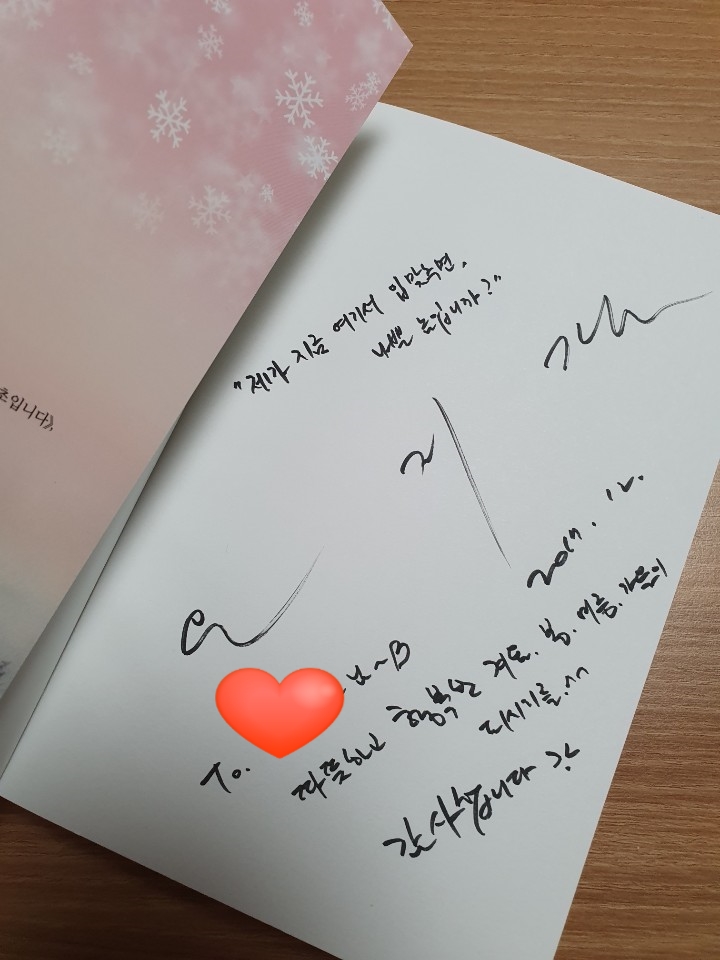 초입니다》,
"제가 지금 여기서 입맞추면,
나쁜 놈입니까?"
지
2017. 12.
To. 님~♡
따뜻하고 행복한 겨울. 봄. 여름. 가을이
되시기를.^^
감사합니다